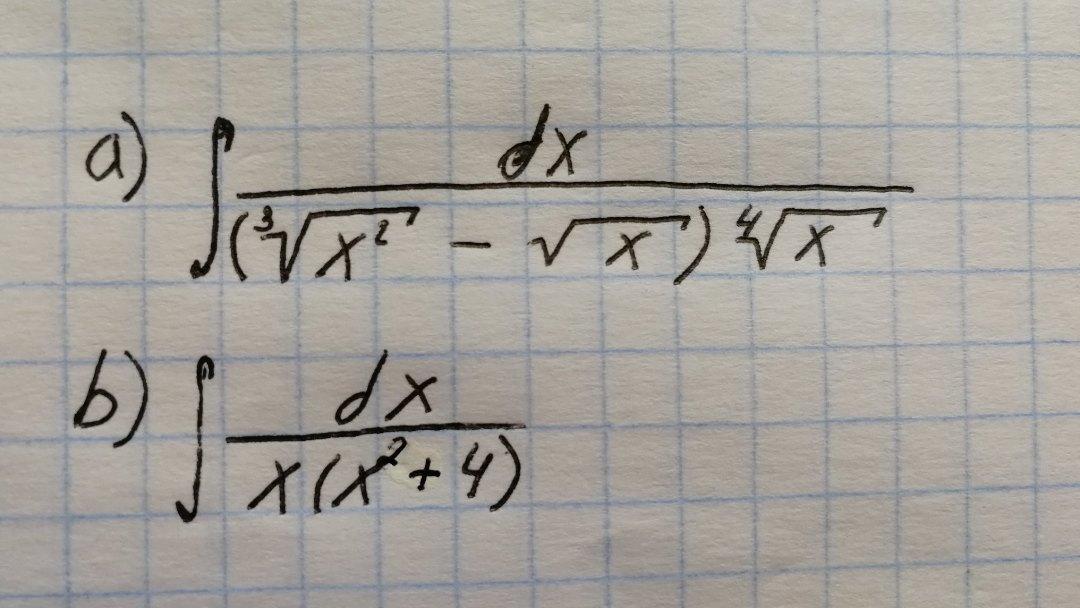 a) ∫ dx / ((∛(x²) − √x) ∜x)
b) ∫ dx / (x(x² + 4))